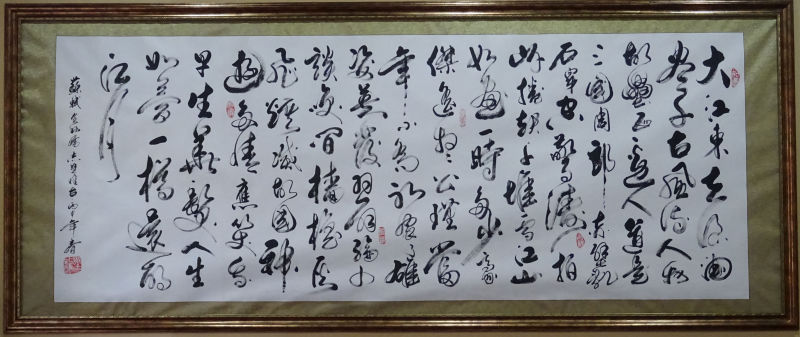 大江東去浪淘
尽千古風流人物
故壘西邊人道是
三國周郎赤壁乱
石穿空驚濤拍
岸捲起千堆雪江山
如画一時多少豪
傑遥想公瑾當
年小喬初嫁雄
姿英發羽扇綸巾
談笑間檣櫓灰
飛煙滅故國神
遊多情應笑我
早生華髮人生
如夢一樽還酹
江月
蘇軾念奴嬌赤壁懷古